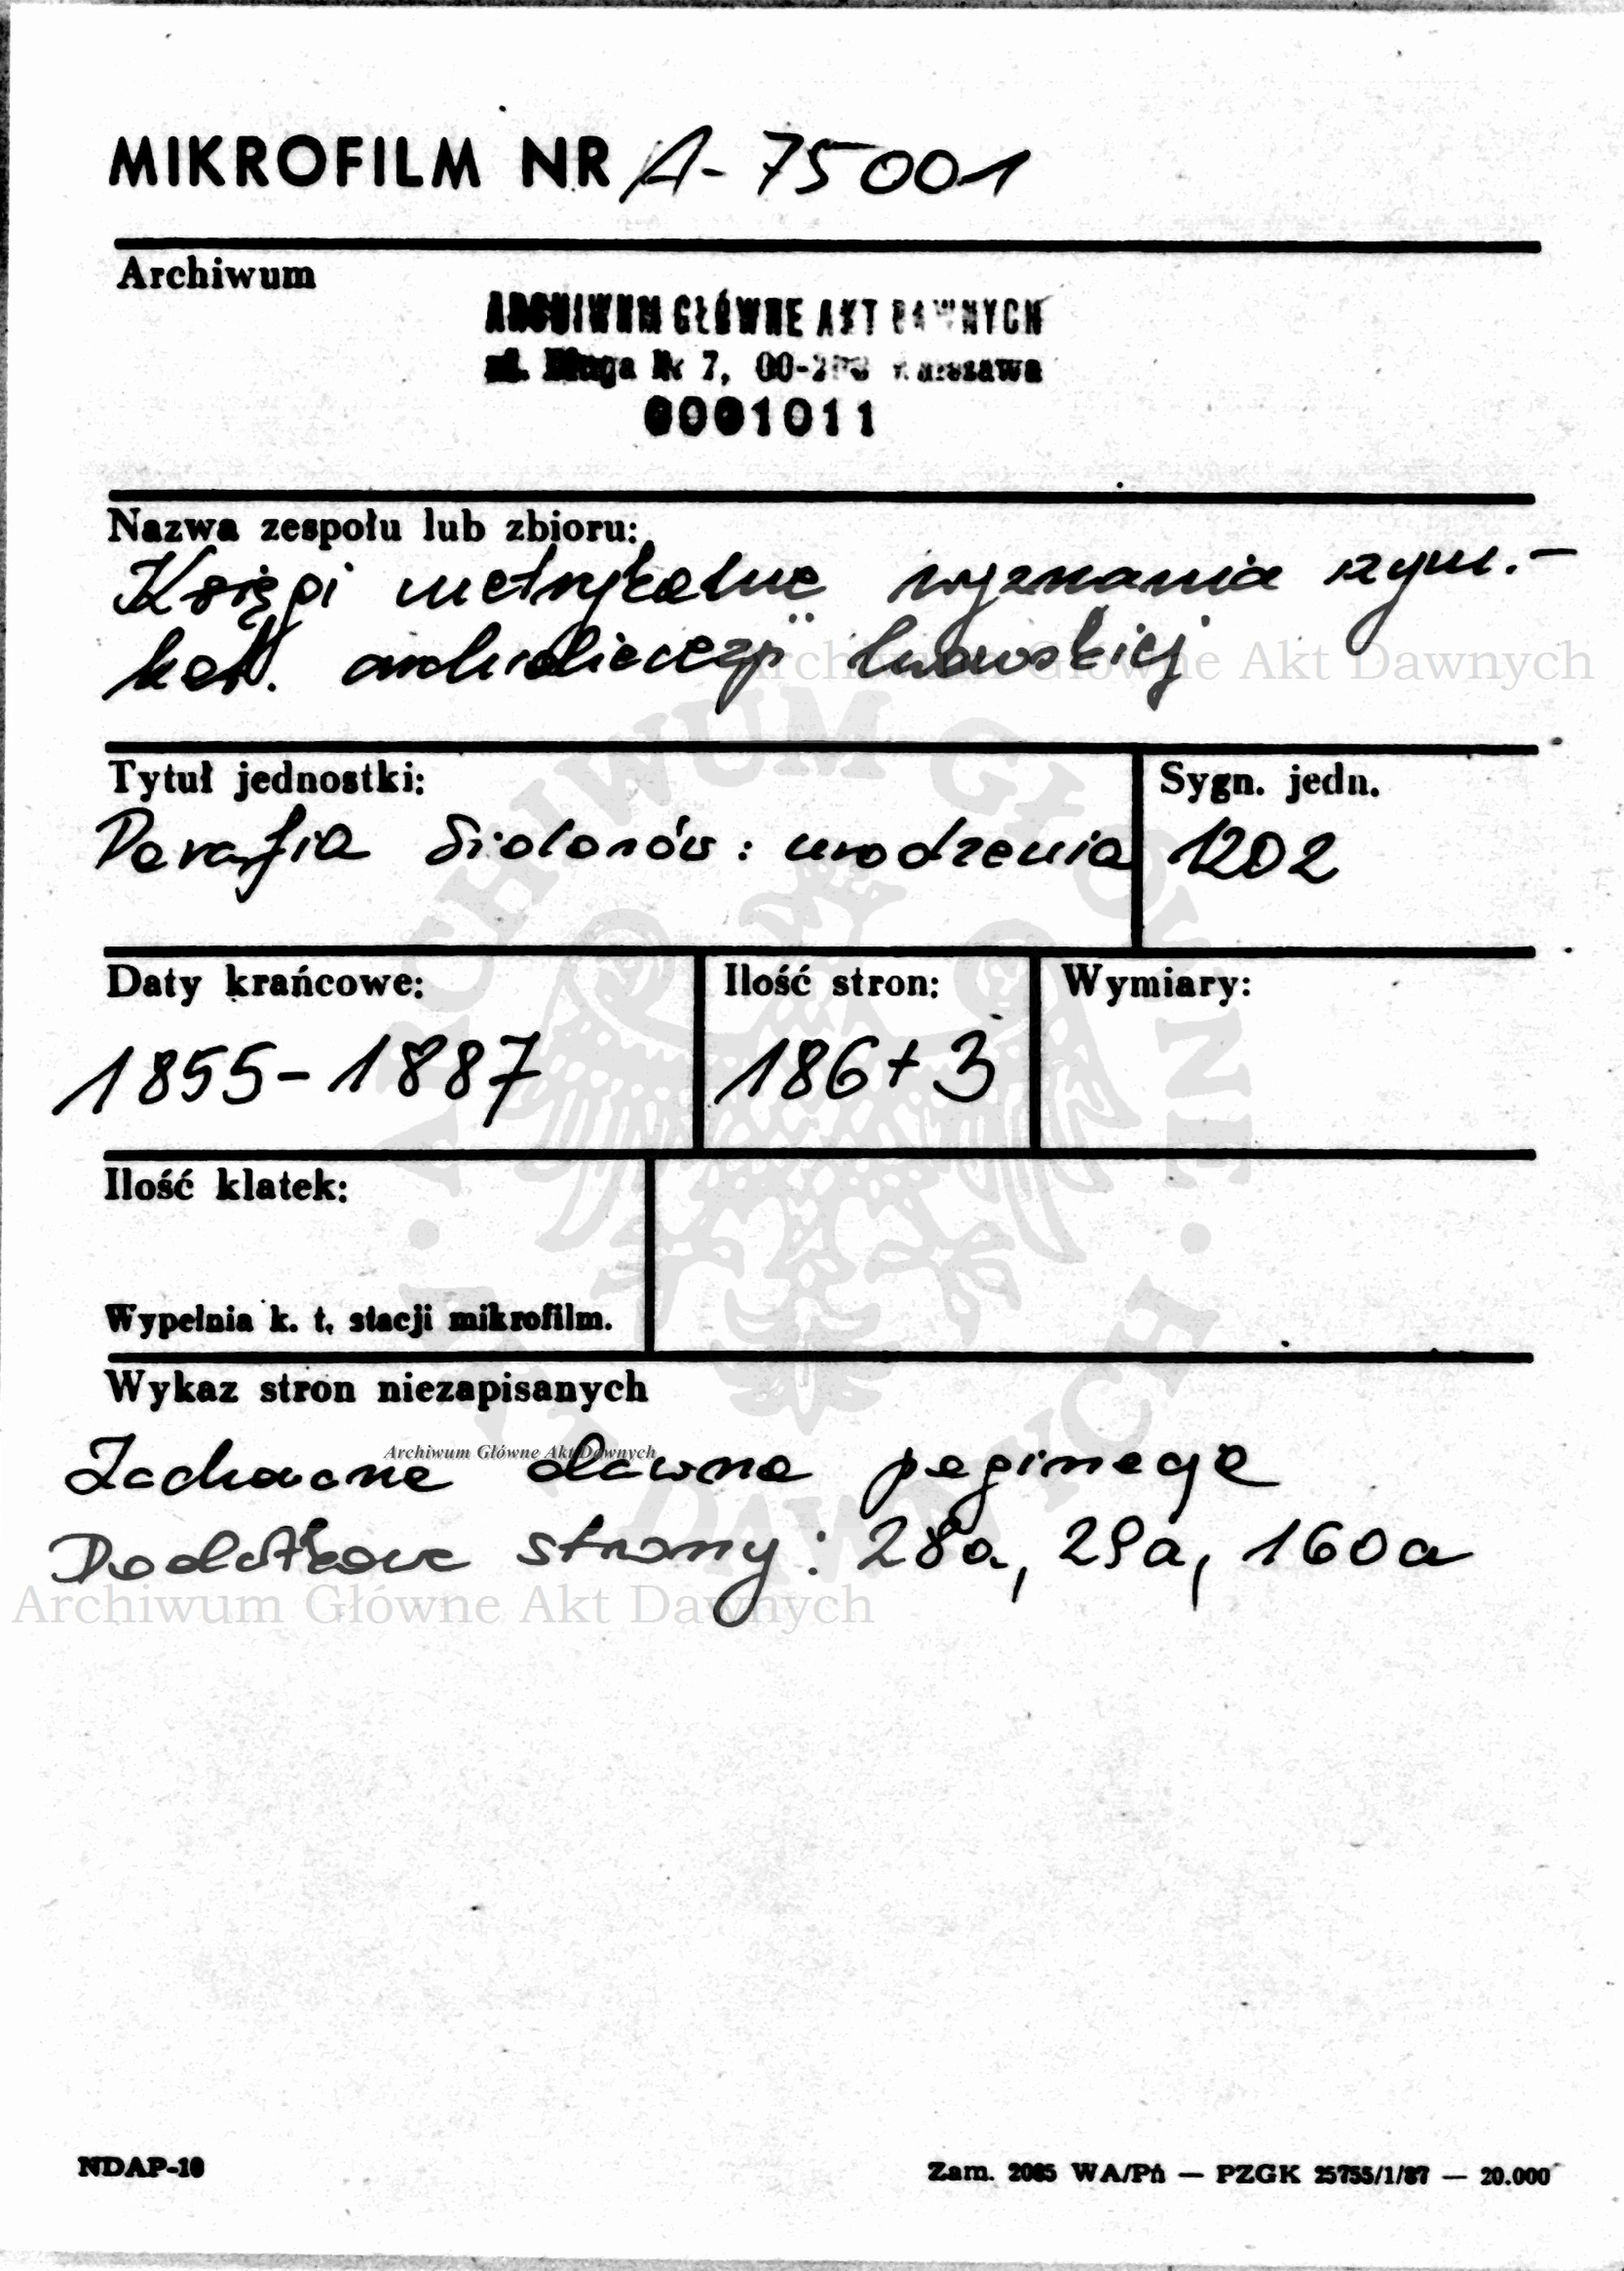 MIKROFILM NR A-75001
Archiwum
ARCHIWUM GŁÓWNE AKT DAWNYCH
ul. Długa Nr 7, 00-263 Warszawa
0001011
Nazwa zespołu lub zbioru:
Księgi metrykalne wyznania rzym.-
kat. archidiecezji lwowskiej
Archiwum Główne Akt Dawnych
Tytuł jednostki:
Sygn. jedn.
Parafia Sidorów: urodzenia
1202
Daty krańcowe:
Ilość stron:
Wymiary:
1855-1887
186+3
Ilość klatek:
Wypełnia k. t. stacji mikrofilm.
Wykaz stron niezapisanych
Archiwum Główne Akt Dawnych
Zachowane dawna paginacja
Dodatkowe strony: 28a, 29a, 160a
Archiwum Główne Akt Dawnych
NDAP-10
Zam. 2085 WA/Pń — PZGK 25755/1/87 — 20.000
ARCHIWUM GŁÓWNE AKT DAWNYCH